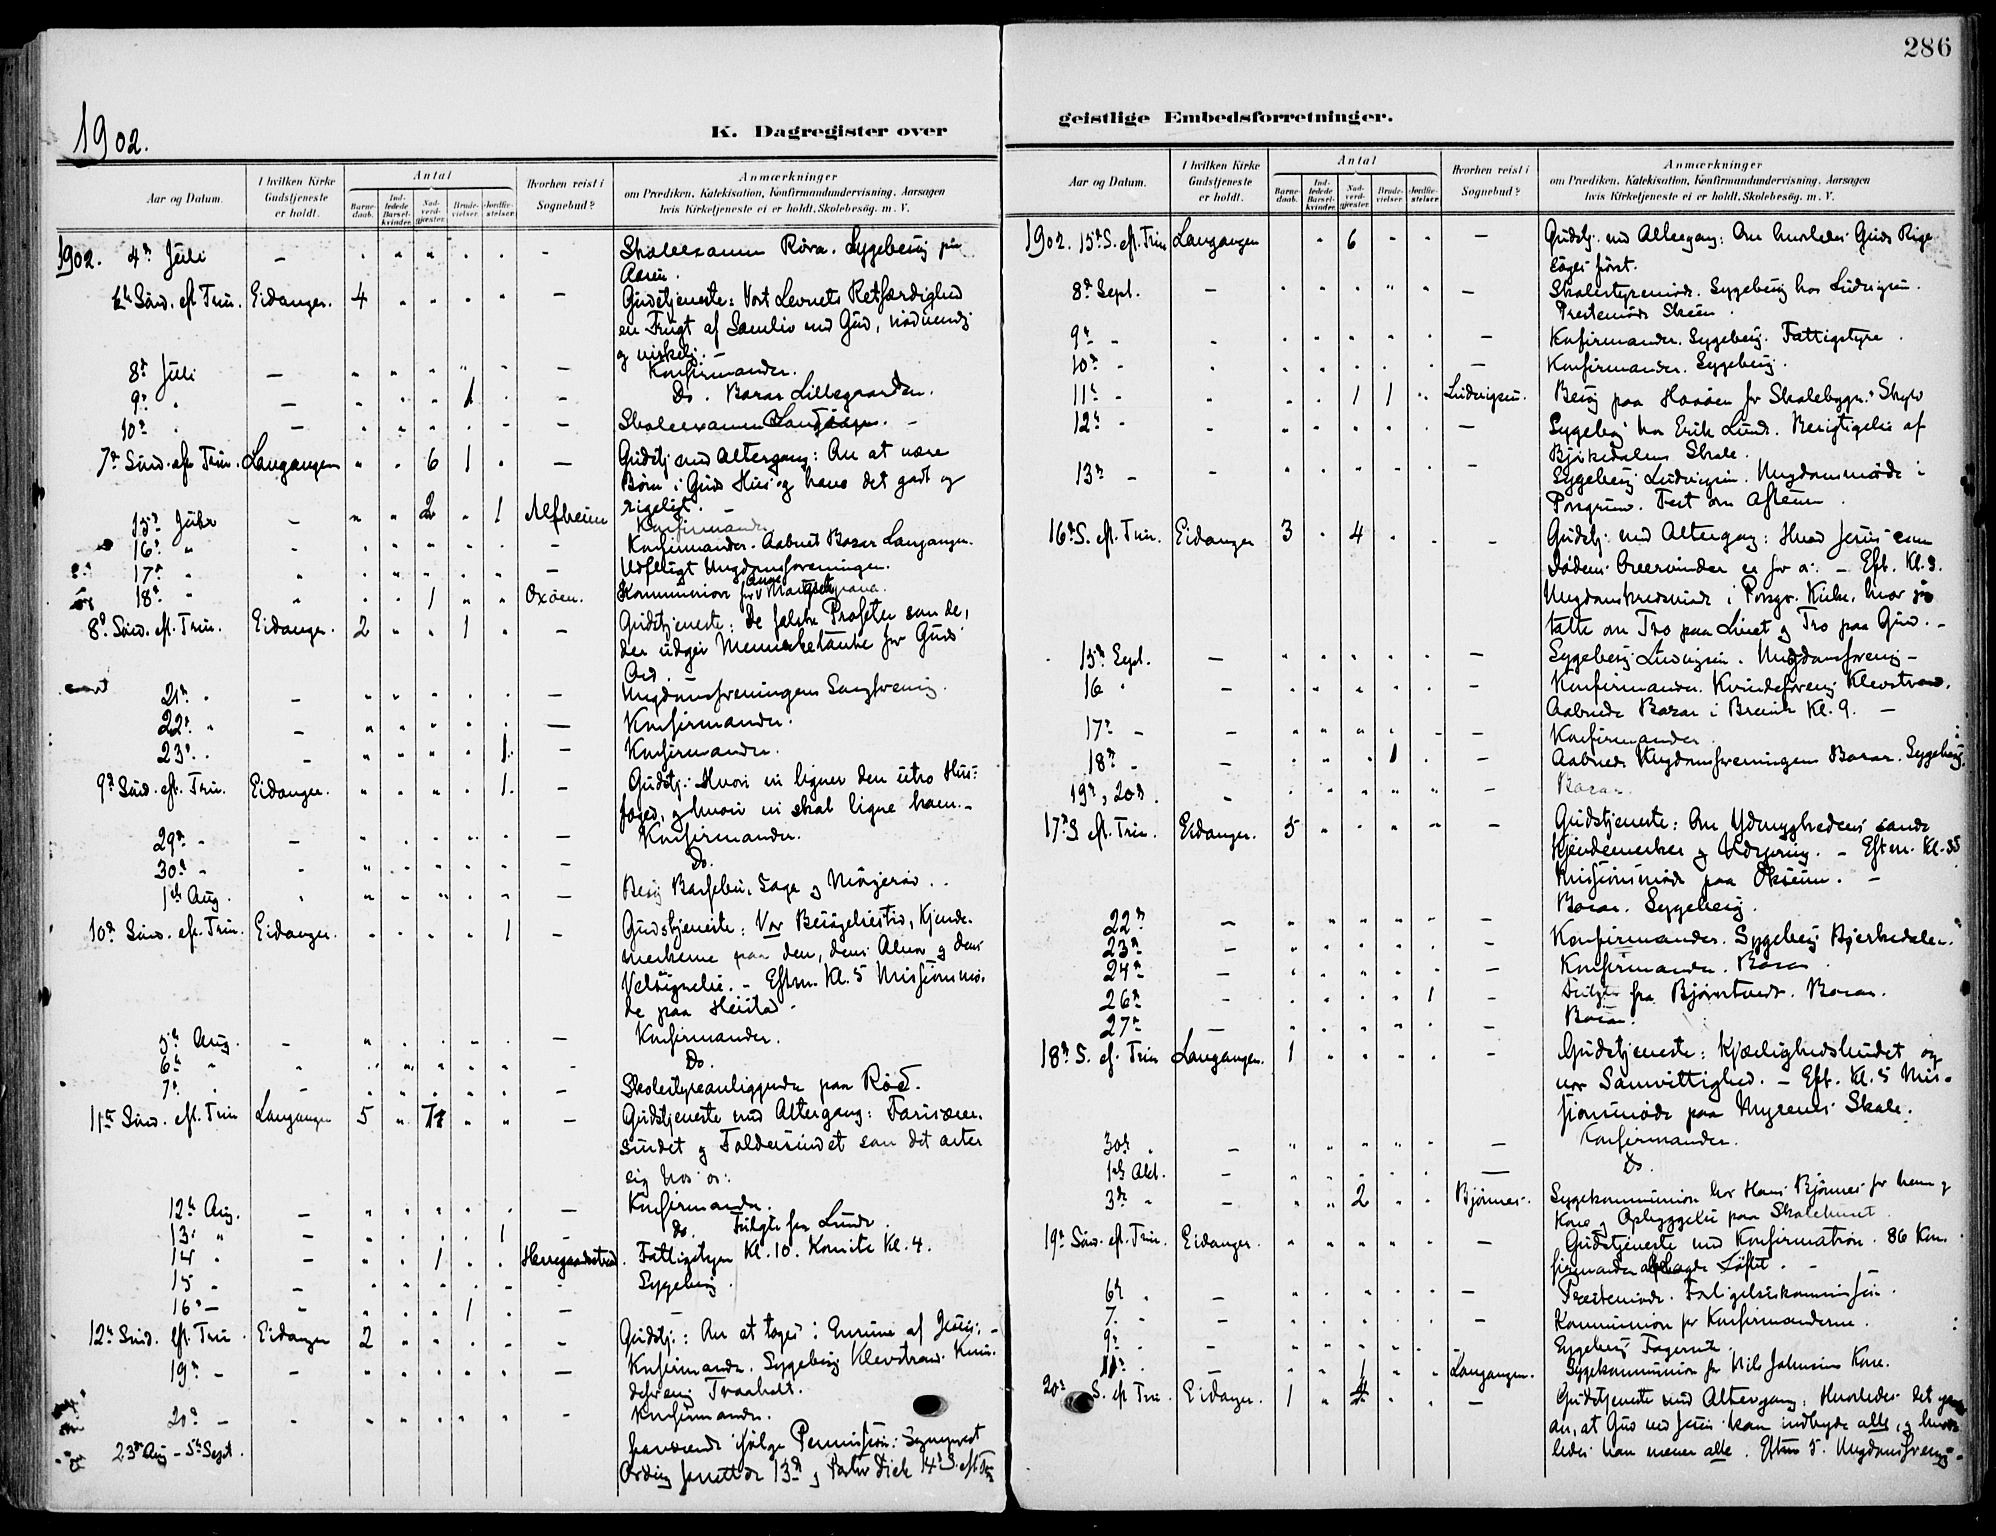 286
1902.
K. Dagregister over
geistlige Embedsforretninger.
Aar og Datum.
I hvilken Kirke Gudstjeneste er holdt.
Antal
Barnedaab.
Indledede Barselkvinder.
Nadverdgjæster.
Brudevielser.
Jordfæstelser.
Hvorhen reist i Sognebud?
Anmærkninger
om Prædiken, Katekisation, Konfirmandundervisning, Aarsagen
hvis Kirketjeneste ei er holdt, Skolebesög. m. V.
1902. 4de Juli — Skoleexamen Röra. Sygebesög på
Aasen.
6te Sönd. eft. Trin. Eidanger. 4 — Gudstjeneste: Vort Levnets Retfærdighed
en Frugt af Samliv med Gud, nödvendig
og virkelig. —
8de Juli — Konfirmander.
9de " — 1 — Do. Bazar Lillegaarden.
10de " — Skoleexamen Langangen. —
7de Sönd. eft. Trin. Langangen 6 1 — Gudstj. med Altergang: Om at være
Börn i Guds Hus og have det godt og
rigeligt. —
15de Juli — 2 1 Alfheim Konfirmander
16de " — Konfirmander. Aabnet Bazar Langangen.
17de " — Udflugt Ungdomsforeningen.
18de " 1 Oxöen. Kommunion for
8de Sönd. eft. Trin. Eidanger. 2 1 — Gudstjeneste: De falske Profeter som de,
der udgir Mennesketanke for Guds
Ord. —
21de " — Ungdomsforeningens Sangforening.
22de " — Konfirmander.
23de " — 1. — Konfirmander.
9de Sönd. eft. Trin. Eidanger. 1. — Gudstj. Hvori vi ligner den utro Hus-
foged, og hvori vi skal ligne ham. —
29de " — Konfirmander.
30de " — Do.
1ste Aug. — Besög
10de Sönd. eft. Trin. Eidanger. 1 — Gudstjeneste: Vor Besögelsestid, Kjende-
merkerne paa den, dens Alvor og dens
Velsignelse. — Efterm. Kl. 5 Missionsmö-
de paa Heistad.
5te Aug. — Konfirmander.
6te " — Do.
7de " — Skolestyreanliggende paa Röd.
11te Sönd. eft. Trin Langangen 5 — Gudstjeneste med Altergang: Farisæer-
sindet og Toldersindet som det arter
sig hos os.
12te Aug. — Konfirmander.
13de " — 1 — do. Fulgte fra Lunde.
14 " — 1 Herregaardstrand. Fattigstyre Kl. 10. Komite Kl. 4.
15 " — Sygebesög.
16de — 1 —
12te Sönd. eft. Trin. Eidanger 2 — Gudstj.: Om at tages i Enrum af Jesus. —
19de — Konfirmander. Sygebesög Klevstrand. Kvin-
deforening Traaholt.
20de — Konfirmander.
23de Aug – 5te Sept. fraværende ifölge Permission: Sogneprest
forrettede 13de og Pastor Dick 14de S. eft. Trin
Aar og Datum.
I hvilken Kirke Gudstjeneste er holdt.
Antal
Barnedaab.
Indledede Barselkvinder.
Nadverdgjæster.
Brudevielser.
Jordfæstelser.
Hvorhen reist i Sognebud?
Anmærkninger
om Prædiken, Katekisation, Konfirmandundervisning, Aarsagen
hvis Kirketjeneste ei er holdt, Skolebesög. m. V.
1902. 15de S. eft. Trin Langangen 6 — Gudstj. med Altergang: Om hvorledes Guds Rige
söges först.
8de Sept. — Skolestyremöde. Sygebesög hos Ludvigsen.
Prestemöde Skien.
9de — Konfirmander. Sygebesög. Fattigstyre.
10de — Konfirmander. Sygebesög.
11te — 1 1 Ludvigsen. Besög paa Haaöen for Skolebygn.
12te — Sygebesög hos Erik Lund. Besigtigelse af
Bjerkedalens Skole.
13de — Sygebesög Ludvigsen. Ungdomsmöde i
Porsgrund. Fest om Aftenen.
16de S. eft. Trin. Eidanger 3 4 — Gudstj. med Altergang: Hvad Jesus som
Dödens Overvinder er for os. — Eft. Kl. 3.
Ungdomskredsmöde i Porsgr. Kirke, hvor jeg
talte om Tro paa Livet og Tro paa Gud. —
15de Sept. — Sygebesög Ludvigsen. Ungdomsforening —
16 " — Konfirmander. Kvindeforening Klevstrand.
Aabnede Bazar i Brevik Kl. 9. —
17de — Konfirmander.
18de — 1 — Aabnede Ungdomsforeningens Bazar. Sygebesög.
19de, 20de. — Bazar.
17de S eft. Trin. Eidanger. 5 — Gudstjeneste: Om Ydmyghedens sande
Kjendemerker og — Efterm. Kl. 5
Missionsmöde paa —
22de — Bazar. Sygebesög.
23de — Konfirmander. Sygebesög Bjerkedalen.
24de — Konfirmander. Bazar.
26de — 1 — Fulgte fra Björntvedt. Bazar.
27de — Bazar.
18de S. ef. Trin Langangen. 1 — Gudstjeneste: Kjærlighedsbudet og
vor Samvittighed. — Eft. Kl. 5 Mis-
sionsmöde paa Myrenes Skole.
30de " — Konfirmander.
1ste Okt. — Do.
3de " — 2 Björnnes. Sygekommunion hos Hans Björnnes for ham og
Kone og Opbyggelse paa Skolehuset.
19de Sönd. eft. Trin. Eidanger. — Gudstjeneste med Konfirmation. 86 Kon-
firmander aflagde Löftet. —
6te " — Prestemöde. Forligelseskommission.
7. " — Kommunion for Konfirmanderne.
9de — Sygebesög
11te — 1 Langangen. Sygekommunion for Nils Johnsens Kone.
20de S. eft Trin. Eidanger. 1 4 — Gudstjeneste med Altergang: Hvorledes det gaar
an, at Gud ved Jesus kan indbyde alle, og hvor-
ledes han mener alle. Efterm 5. Ungdomsforening.